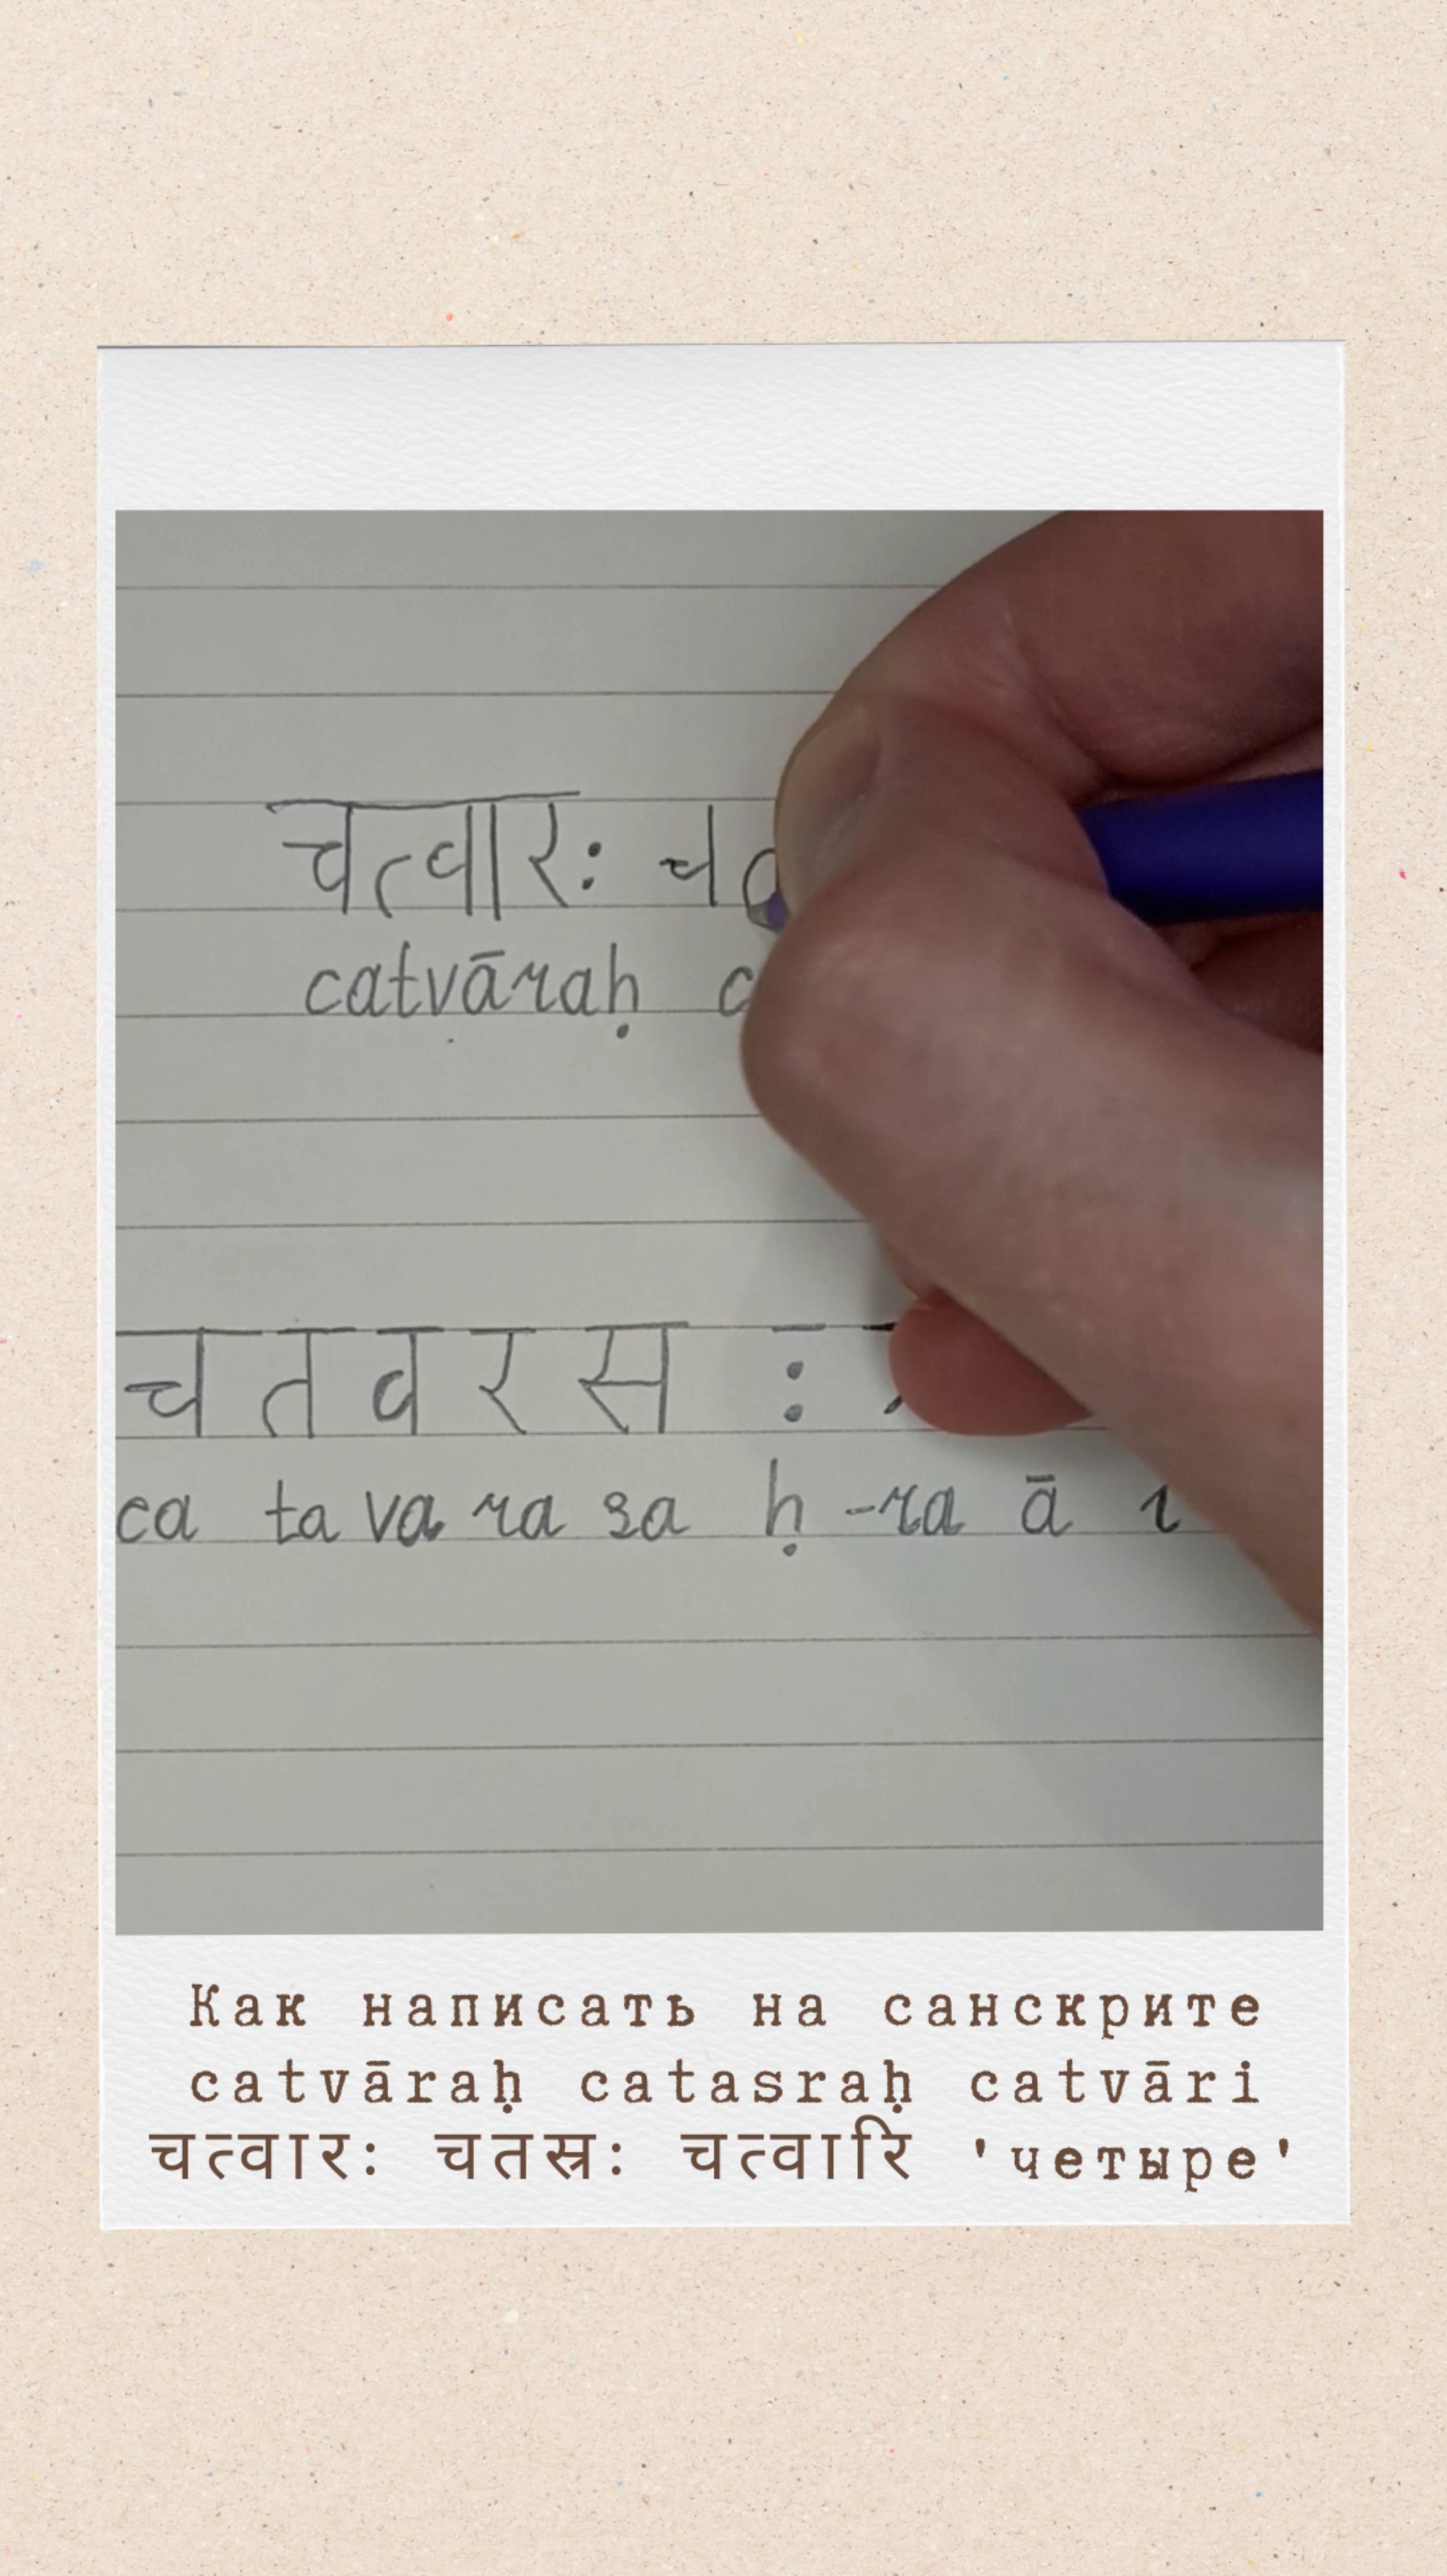 चत्वारः च
catvāraḥ c
च त व र स :
ca ta va ra sa ḥ -ra ā i
Как написать на санскрите
catvāraḥ catasraḥ catvāri
चत्वारः चतस्रः चत्वारि 'четыре'